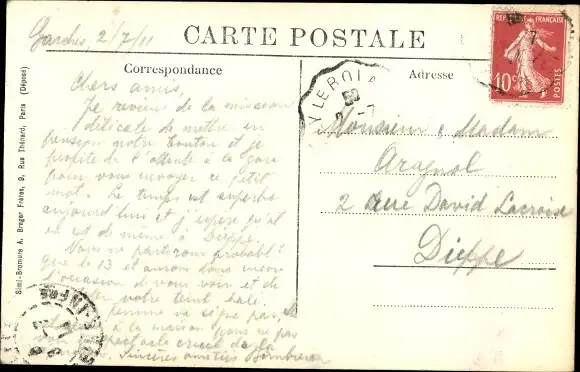 Garches, 2/7/11
CARTE POSTALE
Correspondance
Adresse
RÉPUBLIQUE FRANÇAISE
10c
POSTES
Simi-Bromure A. Breger Frères, 9, Rue Thénard, Paris (Déposé)
Chers amis,
Je reviens de la mission
délicate de mettre en
pension notre toutou et je
profite de l'attente à la gare
pour vous envoyer ce petit
mot. Le temps est superbe
aujourd'hui et j'espère qu'il
en est de même à Dieppe.
Nous ne partirons probablt
que le 13 et aurons donc encore
l'occasion de vous voir et de
votre teint hâlé.
femme ne signe pas,
à la maison pour ne pas
spectacle cruel de la
Sincères amitiés
Monsieur & Madame
Aragnol
2 rue David Lacroix
Dieppe